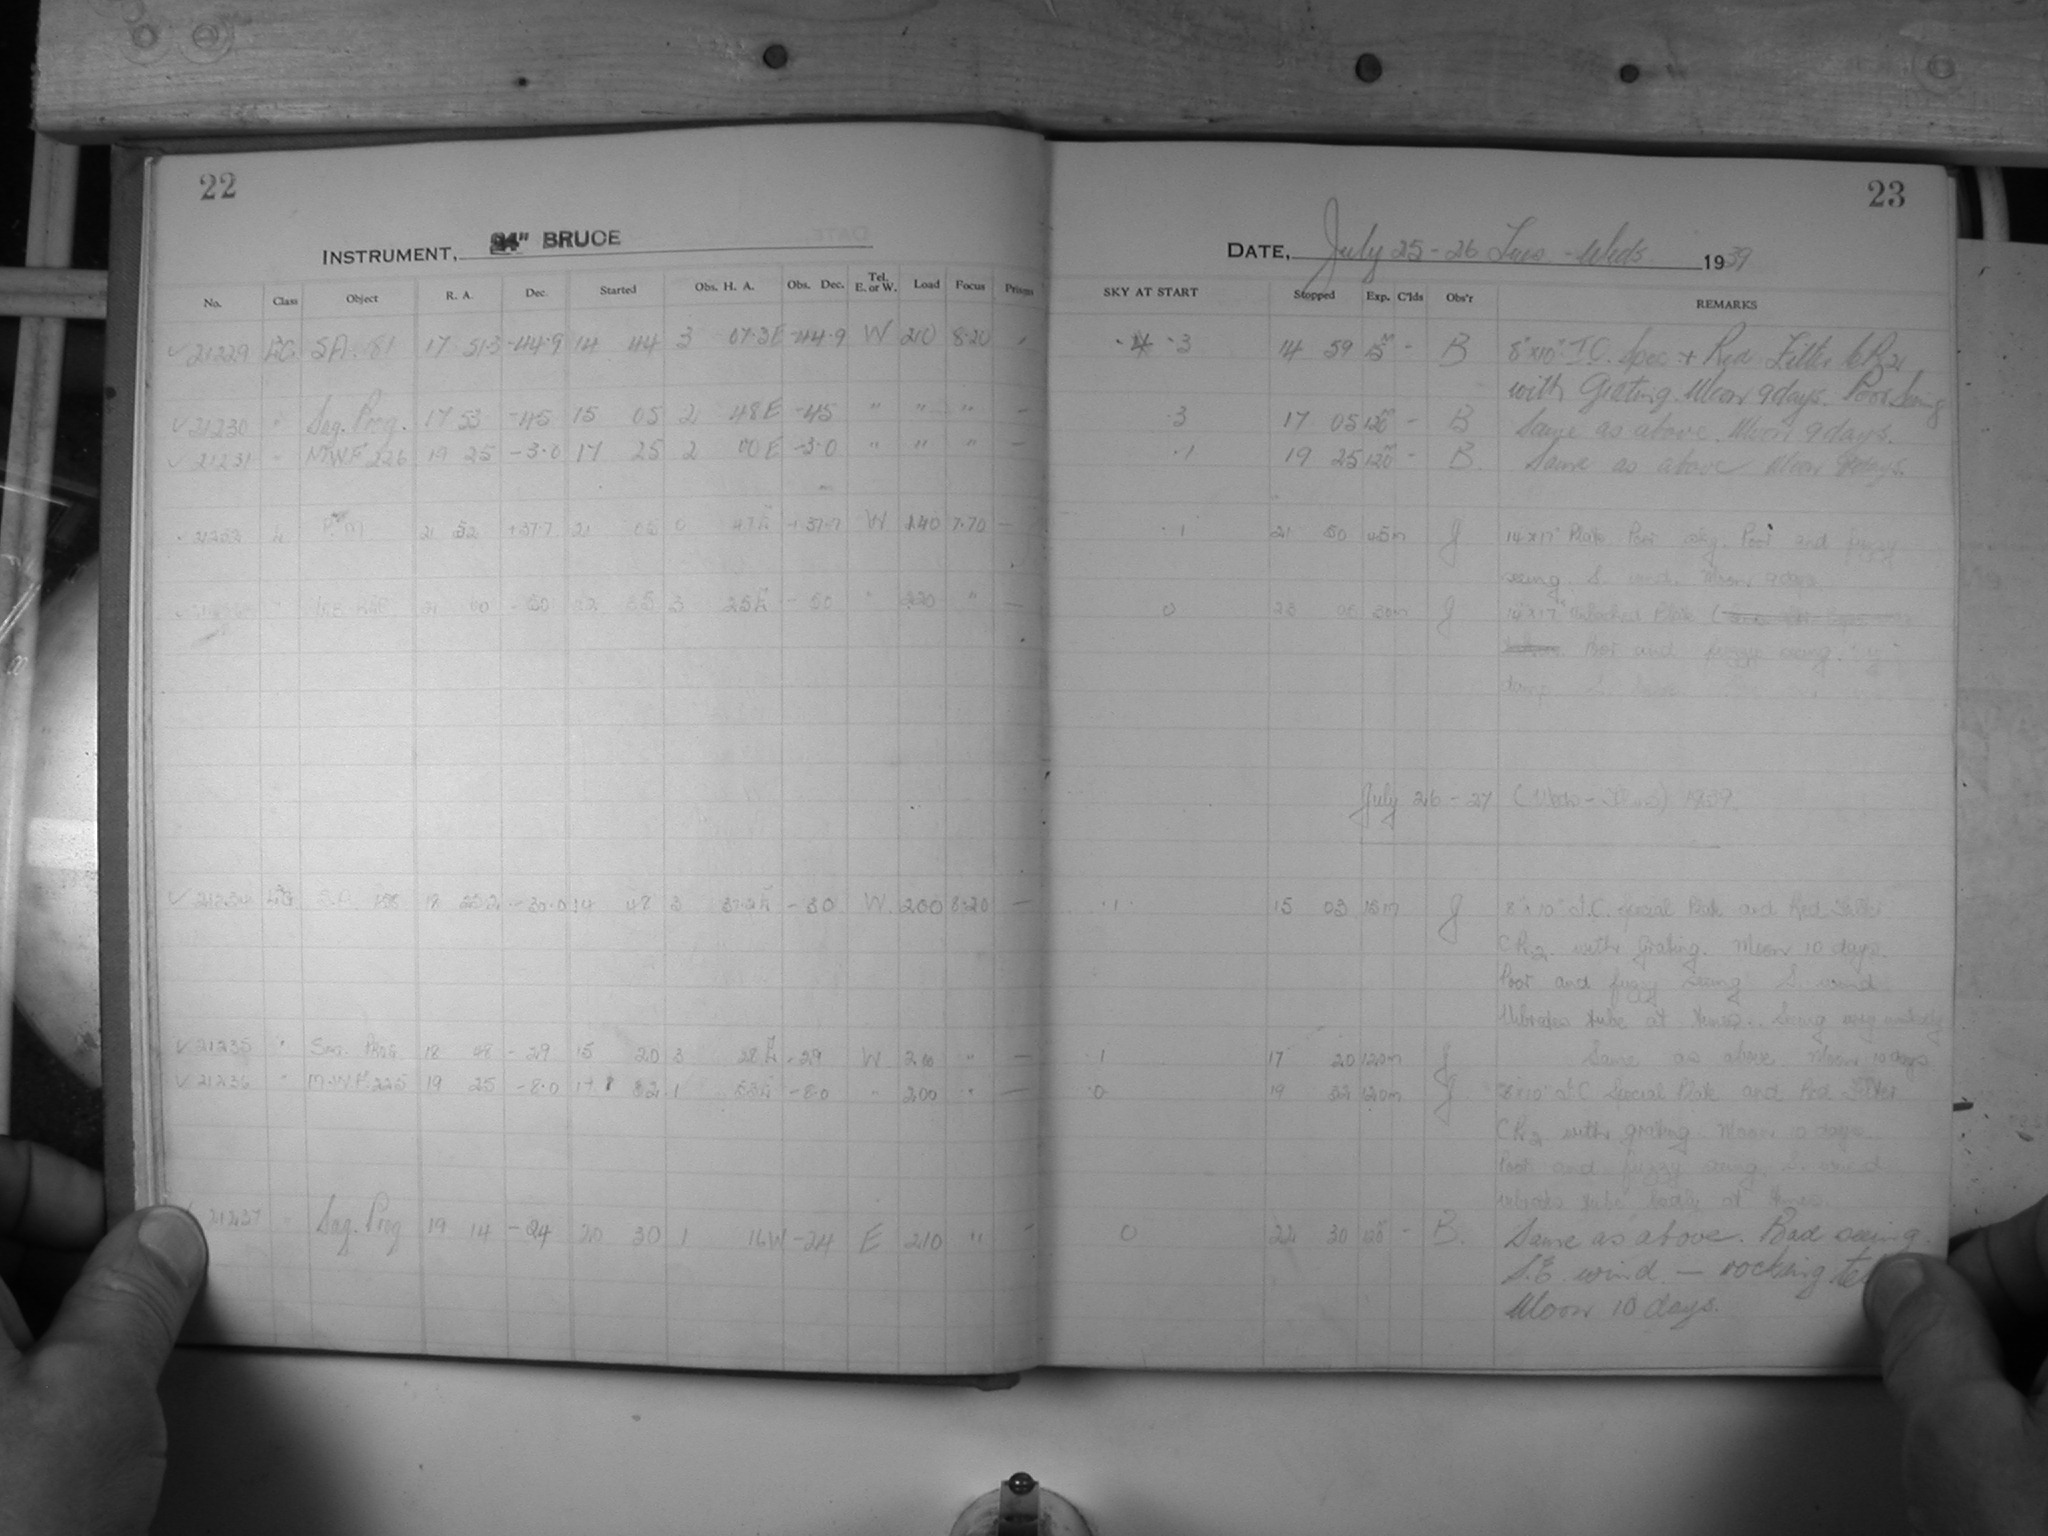 22
INSTRUMENT, 24" BRUCE
No. Class Object R. A. Dec. Started Obs. H. A. Obs. Dec. Tel. E. or W. Load Focus Prisms
21229 S.A. 17 51.3 -44.9 14 44 3 07.3E -44.9 W 210 8.20
21230 " Sag. Prog. 17 53 -45 15 05 2 48E -45 " " " –
21231 " MWF 226 19 25 -3.0 17 25 2 00E -3.0 " " " –
21 52 +37.7 21 05 0 47E +37.7 W 240 7.70 –
- 50 22 35 3 25E - 50 " 220 " –
18 - 30.0 14 48 3 - 30 W. 200 8.20 –
21235 " Sag. Prog. 18 48 - 29 15 20 3 28E - 29 W 200 " –
21236 " M.W.F. 225 19 25 - 8.0 17 32 1 53E - 8.0 " 200 " –
21237 " Sag. Prog 19 14 - 24 20 30 1 16W - 24 E 210 " –
23
DATE, July 25 - 26 Tues - Weds 1939
SKY AT START Stopped Exp. C'lds Obs'r REMARKS
.3 14 59 15m - B 8"x10" I.C. Spec + Red Filter CR2
with Grating. Moon 9 days. Poor Seeing
.3 17 05 120m - B Same as above. Moon 9 days.
.1 19 25 120m - B. Same as above Moon 9 days.
.1 21 50 45m J 14x17" Plate. Poor sky. Poor and fuzzy
seeing. S. wind. Moon 9 days
0 23 05 30m J 14"x17" Plate
Poor and fuzzy seeing.
July 26 - 27 (Weds - Thurs) 1939.
.1 15 03 15m J 8"x10" I.C. Special Plate and Red Filter
CR2 with grating. Moon 10 days.
Poor and fuzzy seeing S. wind
vibrates tube at times. Seeing very
.1 17 20 120m J Same as above. Moon 10 days
.0 19 32 120m J 8"x10" I.C. Special Plate and Red Filter
CR2 with grating. Moon 10 days
Poor and fuzzy seeing, S. wind
vibrates tube badly at times.
0 22 30 120m - B. Same as above. Bad seeing.
S.E. wind. — rocking
Moon 10 days.